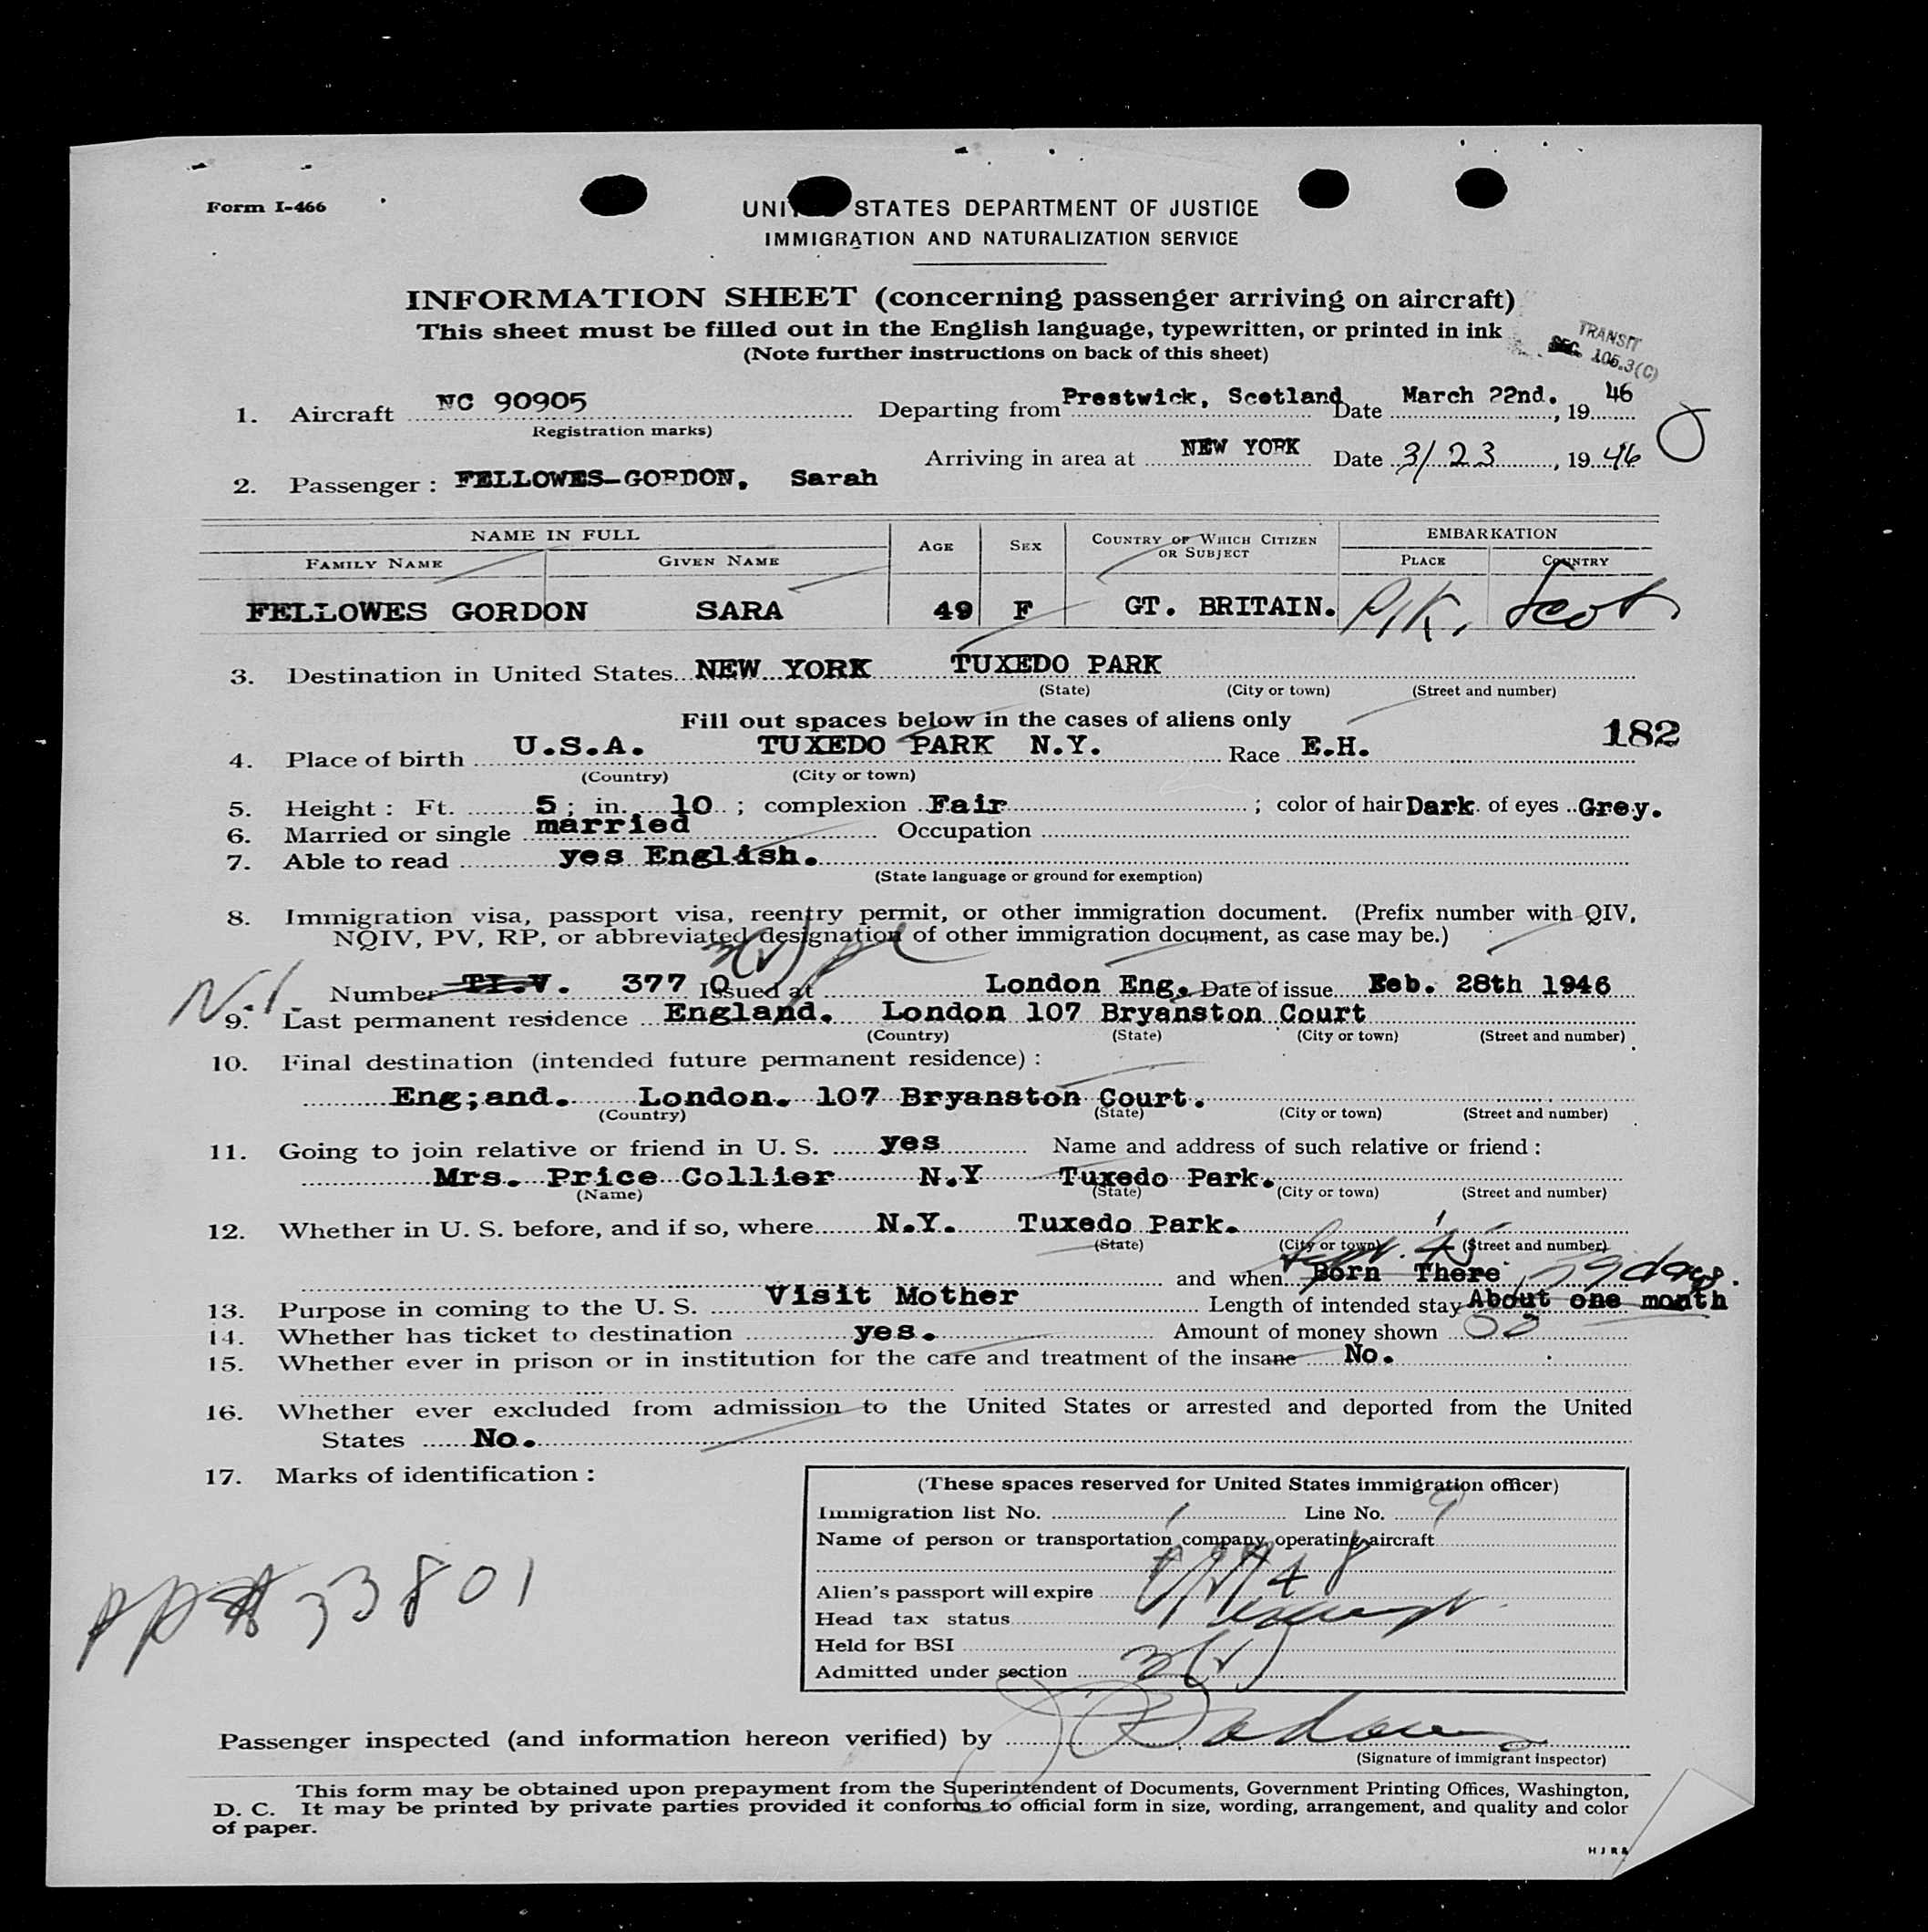 Form I-466
UNI STATES DEPARTMENT OF JUSTICE
IMMIGRATION AND NATURALIZATION SERVICE
INFORMATION SHEET (concerning passenger arriving on aircraft)
This sheet must be filled out in the English language, typewritten, or printed in ink
(Note further instructions on back of this sheet)
TRANSIT
SEC. 105.3(C)
1. Aircraft NC 90905 Departing from Prestwick, Scotland Date March 22nd. , 19 46
Registration marks)
Arriving in area at NEW YORK Date 3/23 , 19 46
2. Passenger : FELLOWES-GORDON, Sarah
NAME IN FULL AGE SEX COUNTRY OF WHICH CITIZEN OR SUBJECT EMBARKATION
FAMILY NAME GIVEN NAME PLACE COUNTRY
FELLOWES GORDON SARA 49 F GT. BRITAIN. P/K, Scot
3. Destination in United States NEW YORK TUXEDO PARK
(State) (City or town) (Street and number)
Fill out spaces below in the cases of aliens only
182
4. Place of birth U.S.A. TUXEDO PARK N.Y. Race E.H.
(Country) (City or town)
5. Height : Ft. 5 ; in. 10 ; complexion Fair ; color of hair Dark of eyes Grey.
6. Married or single married Occupation
7. Able to read yes English.
(State language or ground for exemption)
8. Immigration visa, passport visa, reentry permit, or other immigration document. (Prefix number with QIV,
NQIV, PV, RP, or abbreviated designation of other immigration document, as case may be.)
3(V)
N.I. Number TI.V. 377 0 Issued at London Eng. Date of issue Feb. 28th 1946
9. Last permanent residence England. London 107 Bryanston Court
(Country) (State) (City or town) (Street and number)
10. Final destination (intended future permanent residence) :
Eng;and. London. 107 Bryanston Court.
(Country) (State) (City or town) (Street and number)
11. Going to join relative or friend in U. S. yes Name and address of such relative or friend :
Mrs. Price Collier N.Y Tuxedo Park.
(Name) (State) (City or town) (Street and number)
12. Whether in U. S. before, and if so, where N.Y. Tuxedo Park.
(State) (City or town) (Street and number)
and when Born There 29 days.
13. Purpose in coming to the U. S. Visit Mother Length of intended stay About one month
14. Whether has ticket to destination yes. Amount of money shown
15. Whether ever in prison or in institution for the care and treatment of the insane No.
16. Whether ever excluded from admission to the United States or arrested and deported from the United
States No.
17. Marks of identification :
(These spaces reserved for United States immigration officer)
Immigration list No. 1 Line No. 9
Name of person or transportation company operating aircraft
Alien's passport will expire
Head tax status
Held for BSI
Admitted under section 3(V)
PP# 33801
Passenger inspected (and information hereon verified) by
(Signature of immigrant inspector)
This form may be obtained upon prepayment from the Superintendent of Documents, Government Printing Offices, Washington,
D. C. It may be printed by private parties provided it conforms to official form in size, wording, arrangement, and quality and color
of paper.